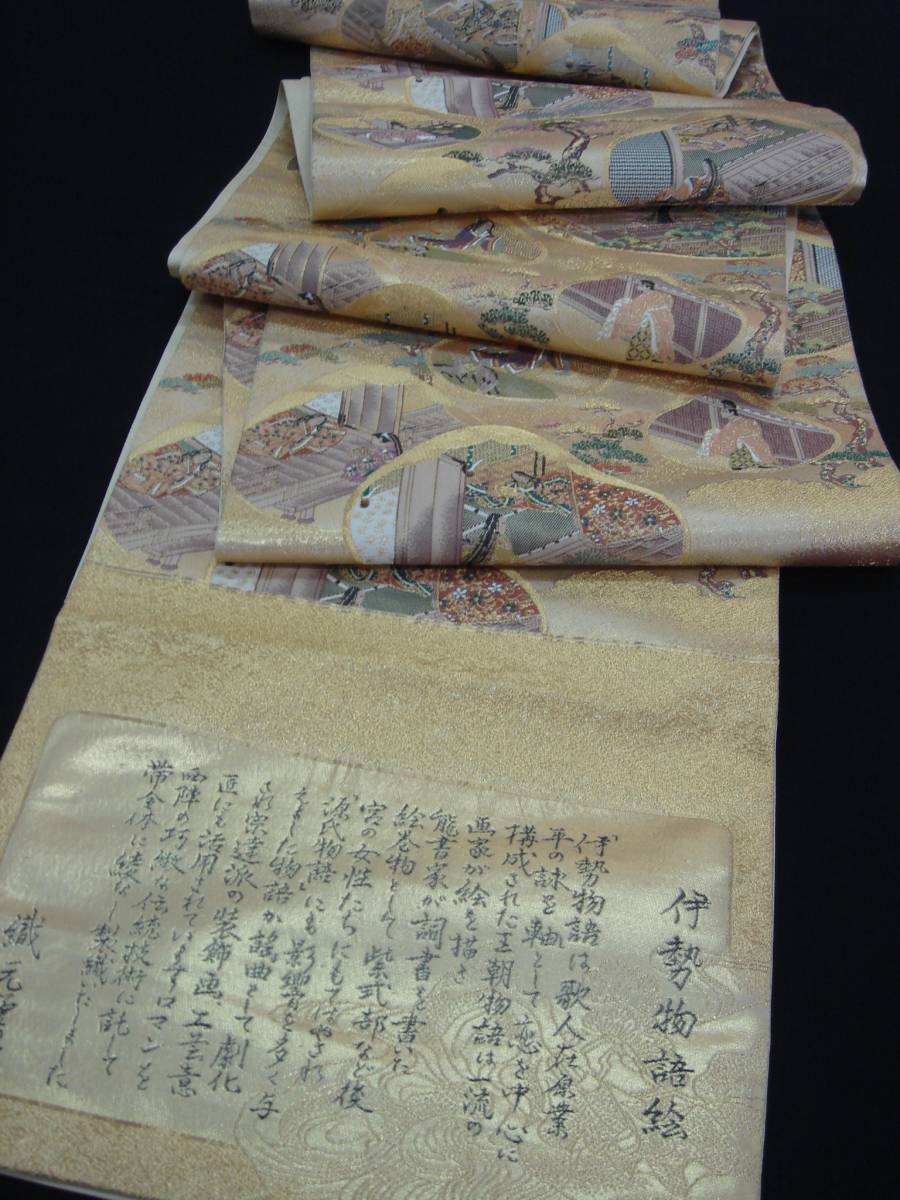 伊勢物語絵
伊勢物語は歌人在原業
平の詠を軸として恋を中心に
構成された王朝物語は一流の
画家が絵を描き
能書家が詞書を書いた
絵巻物として紫式部など後
宮の女性たちにもてはやされ
源氏物語にも影響を多く与
えました物語が謡曲として劇化
され宗達派の装飾画工芸意
匠にも活用されていますロマンを
西陣の巧緻な伝統技術に託して
帯全体に綾なし製織いたしました
織元